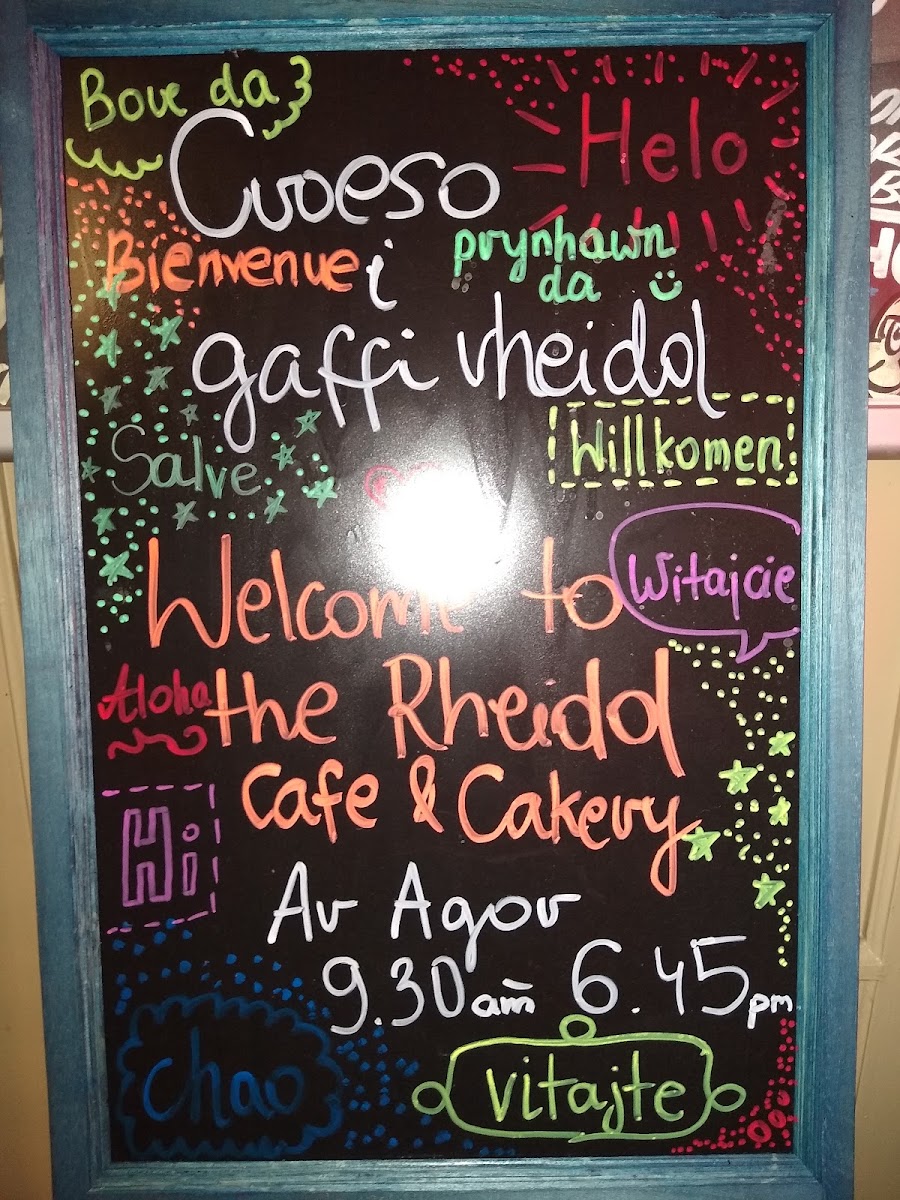 Bore da
Croeso
Helo
Bienvenue
i
prynhawn
da
gaffi rheidol
Salve
Willkomen
Welcome to
Witajcie
the Rheidol
Aloha
Cafe & Cakery
Hi
Ar Agor
9.30am - 6.45pm
Chao
Vitajte